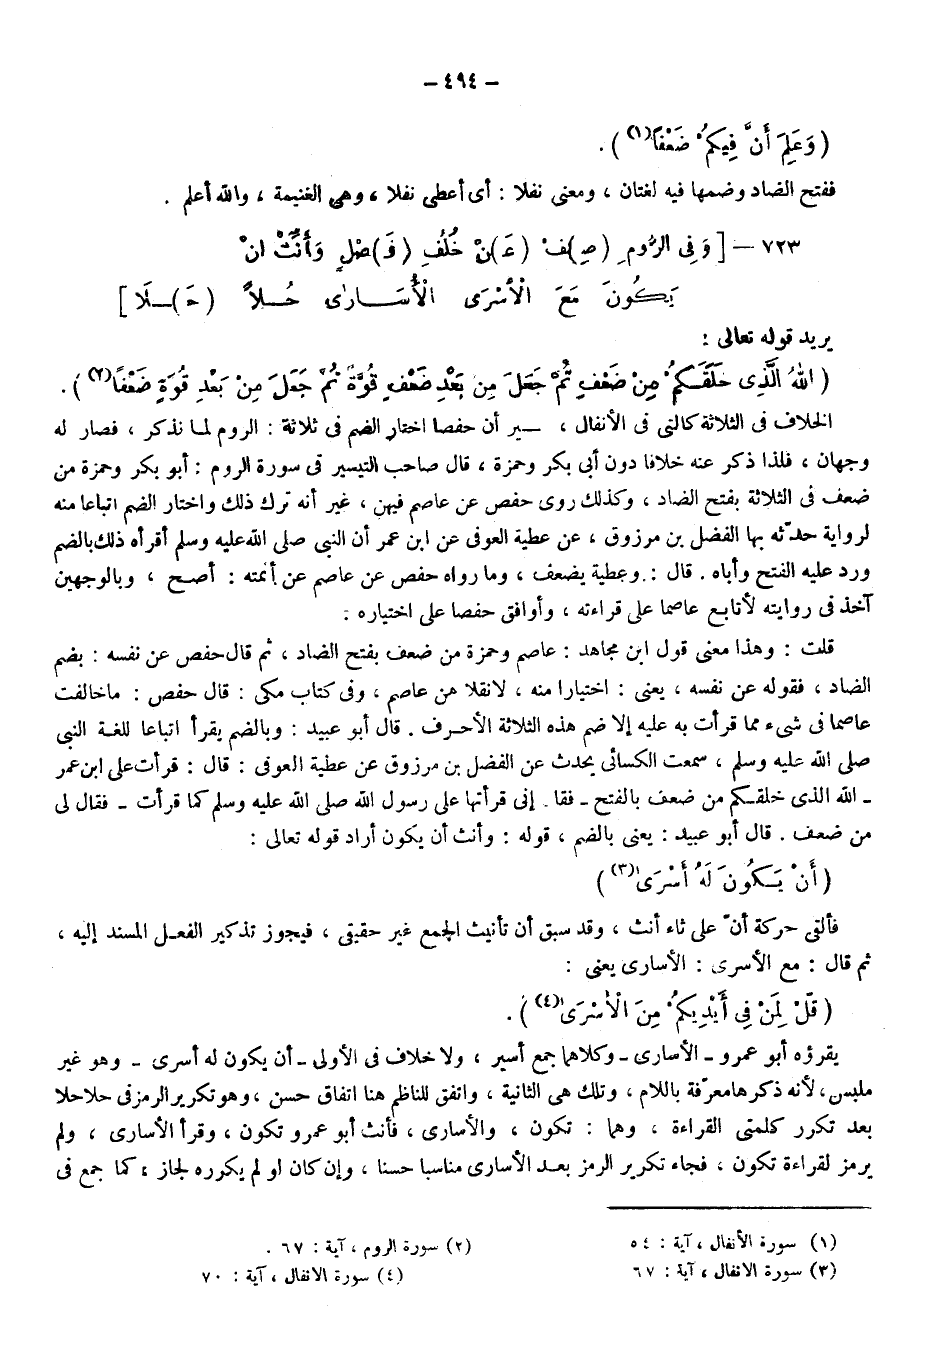 – ٤٩٤ –
( وَعَلِمَ أَنَّ فِيكُمْ ضَعْفًا(١) ) .
ففتح الضاد وضمها فيه لغتان ، ومعنى نفلا : أى أعطى نفلا ، وهى الغنيمة ، والله أعلم .
٧٢٣ – [ وَفِى الرُّومِ (صِ)فْ (عَ)نْ خُلْفِ (فَ)صْلٍ وَأَنِّثَ انْ
يَكُونَ مَعَ الْأَسْرَى الْأُسَارَى حُلاً (حَ)ـلَا ]
يريد قوله تعالى :
( اللهُ الَّذِى خَلَقَكُمْ مِنْ ضَعْفٍ ثُمَّ جَعَلَ مِن بَعْدِ ضَعْفٍ قُوَّةً ثُمَّ جَعَلَ مِنْ بَعْدِ قُوَةٍ ضَعْفًا(٢) ) .
الخلاف فى الثلاثة كالتى فى الأنفال ، ـير أن حفصا اختار الضم فى ثلاثة : الروم لما نذكر ، فصار له
وجهان ، فلذا ذكر عنه خلافا دون أبى بكر وحمزة ، قال صاحب التيسير فى سورة الروم : أبو بكر وحمزة من
ضعف فى الثلاثة بفتح الضاد ، وكذلك روى حفص عن عاصم فيهن ، غير أنه ترك ذلك واختار الضم اتباعا منه
لرواية حدّثه بها الفضل بن مرزوق ، عن عطية العوفى عن ابن عمر أن النبى صلى الله عليه وسلم أقرأه ذلك بالضم
ورد عليه الفتح وأباه . قال : وعطية يضعف ، وما رواه حفص عن عاصم عن أئمته : أصح ، وبالوجهين
آخذ فى روايته لأتابع عاصما على قراءته ، وأوافق حفصا على اختياره :
قلت : وهذا معنى قول ابن مجاهد : عاصم وحمزة من ضعف بفتح الضاد ، ثم قال حفص عن نفسه : بضم
الضاد ، فقوله عن نفسه ، يعنى : اختيارا منه ، لا نقلا عن عاصم ، وفى كتاب مكى : قال حفص : ما خالفت
عاصما فى شىء مما قرأت به عليه إلا ضم هذه الثلاثة الأحرف . قال أبو عبيد : وبالضم يقرأ اتباعا للغة النبى
صلى الله عليه وسلم ، سمعت الكسائى يحدث عن الفضل بن مرزوق عن عطية العوفى : قال : قرأت على ابن عمر
ـ الله الذى خلقكم من ضعف بالفتح ـ فقا . إنى قرأتها على رسول الله صلى الله عليه وسلم كما قرأت ـ فقال لى
من ضعف . قال أبو عبيد : يعنى بالضم ، قوله : وأنث أن يكون أراد قوله تعالى :
( أَنْ يَكُونَ لَهُ أَسْرَى(٣) )
فألقى حركة أن على ثاء أنث ، وقد سبق أن تأنيث الجمع غير حقيقى ، فيجوز تذكير الفعل المسند إليه ،
ثم قال : مع الأسرى : الأسارى يعنى :
( قُلْ لِمَنْ فِى أَيْدِيكُمْ مِنَ الْأَسْرَى(٤) ) .
يقرؤه أبو عمرو ـ الأسارى ـ وكلاهما جمع أسير ، ولا خلاف فى الأولى ـ أن يكون له أسرى ـ وهو غير
ملبس، لأنه ذكرها معرّفة باللام ، وتلك هى الثانية ، واتفق للناظم هنا اتفاق حسن ، وهو تكرير الرمز فى حلا حلا
بعد تكرر كلمتى القراءة ، وهما : تكون ، والأسارى ، فأنث أبو عمرو تكون ، وقرأ الأسارى ، ولم
يرمز لقراءة تكون ، فجاء تكرير الرمز بعد الأسارى مناسبا حسنا ، وإن كان او لم يكرره لجاز ، كما جمع فى
(١) سورة الأنفال ، آية : ٥٤ (٢) سورة الروم ، آية : ٦٧ .
(٣) سورة الانفال ، آية : ٦٧ (٤) سورة الانفال ، آية : ٧٠